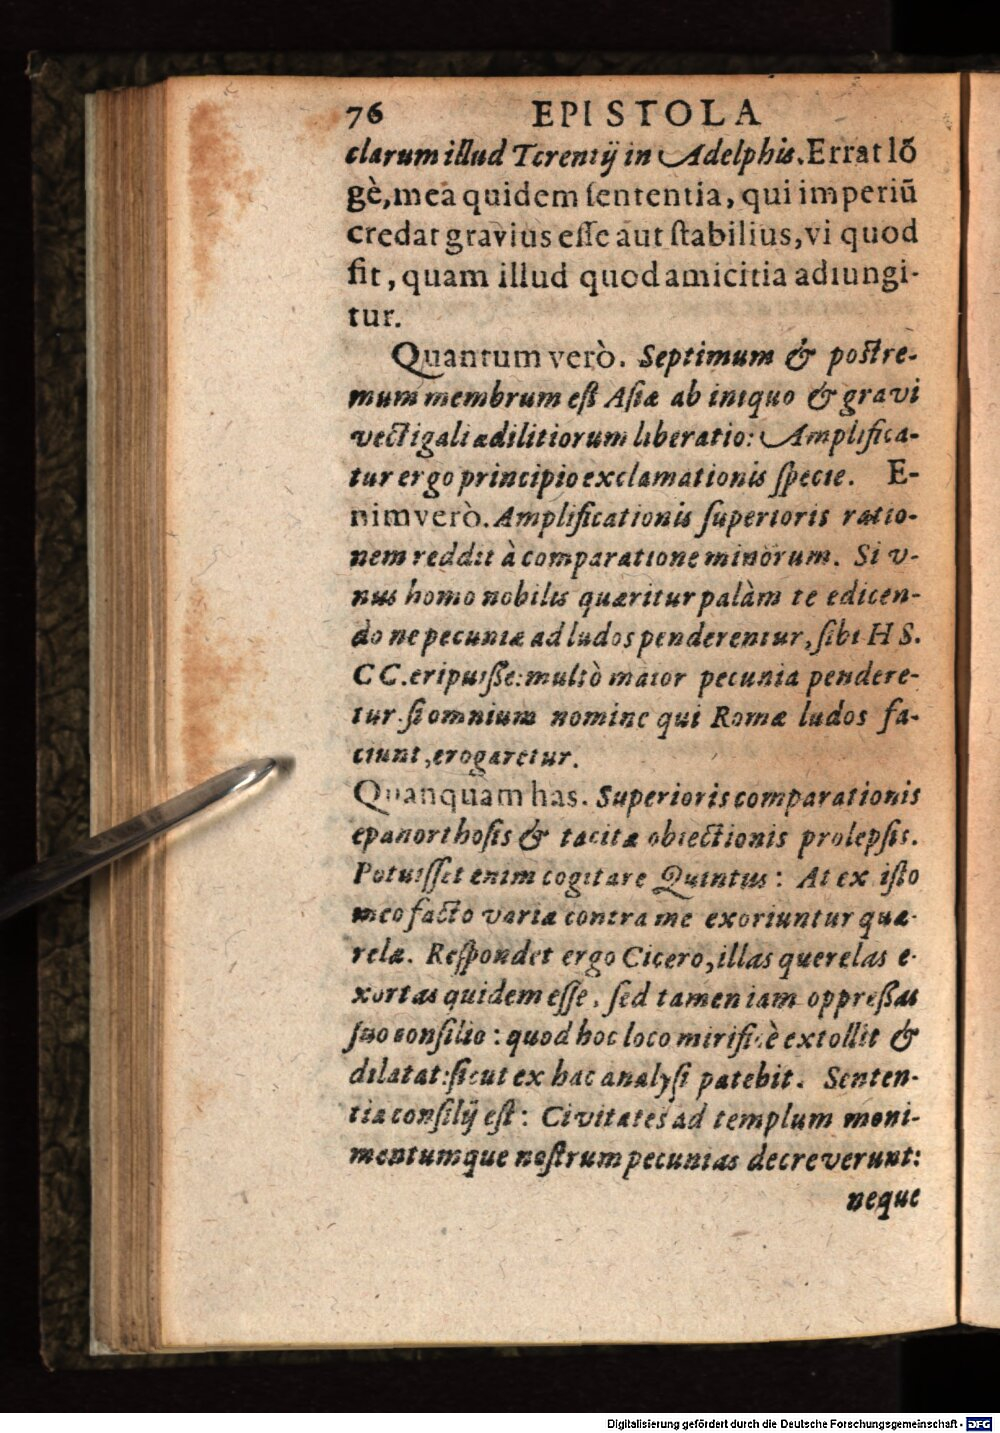 76 EPISTOLA
clarum illud Terentij in Adelphis. Errat lõ
gè, mea quidem sententia, qui imperiũ
credat gravius esse aut stabilius, vi quod
fit, quam illud quod amicitia adiungi-
tur.
Quantum verò. Septimum & postre-
mum membrum est Asiæ ab iniquo & gravi
vectigali ædilitiorum liberatio: Amplifica-
tur ergo principio exclamationis specie. E-
nimverò. Amplificationis superioris ratio-
nem reddit à comparatione minorum. Si v-
nus homo nobilis quæritur palàm te edicen-
do ne pecuniæ ad ludos penderentur, sibi HS.
CC. eripuisse: multò maior pecunia pendere-
tur. si omnium nomine qui Romæ ludos fa-
ciunt, erogaretur.
Quanquam has. Superioris comparationis
epanorthosis & tacitæ obiectionis prolepsis.
Potuisset enim cogitare Quintus: At ex isto
meo facto variæ contra me exoriuntur quæ-
relæ. Respondet ergo Cicero, illas querelas e-
xortas quidem esse, sed tamen iam oppressas
suo consilio: quod hoc loco mirificè extollit &
dilatat: sicut ex hac analysi patebit. Senten-
tia consilij est: Civitates ad templum moni-
mentumque nostrum pecunias decreverunt:
neque
Digitalisierung gefördert durch die Deutsche Forschungsgemeinschaft - DFG